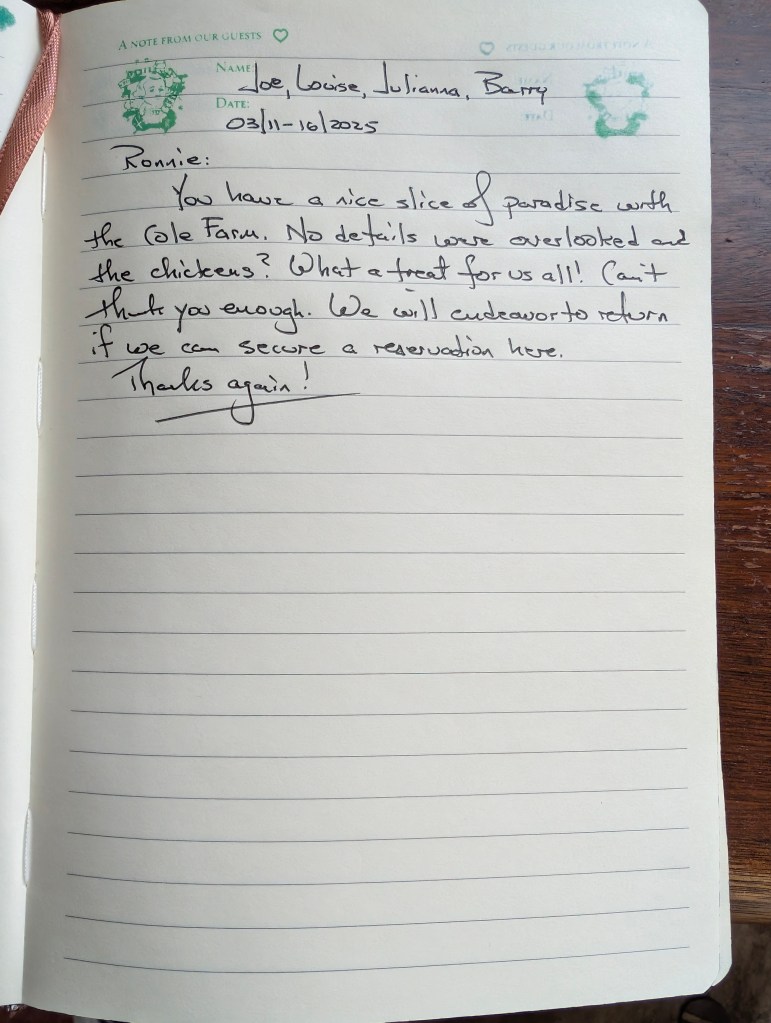 A NOTE FROM OUR GUESTS
NAME: Joe, Louise, Julianna, Barry
DATE: 03/11-16/2025
Ronnie:
You have a nice slice of paradise with
the Cole Farm. No details were overlooked and
the chickens? What a treat for us all! Can't
thank you enough. We will endeavor to return
if we can secure a reservation here.
Thanks again!